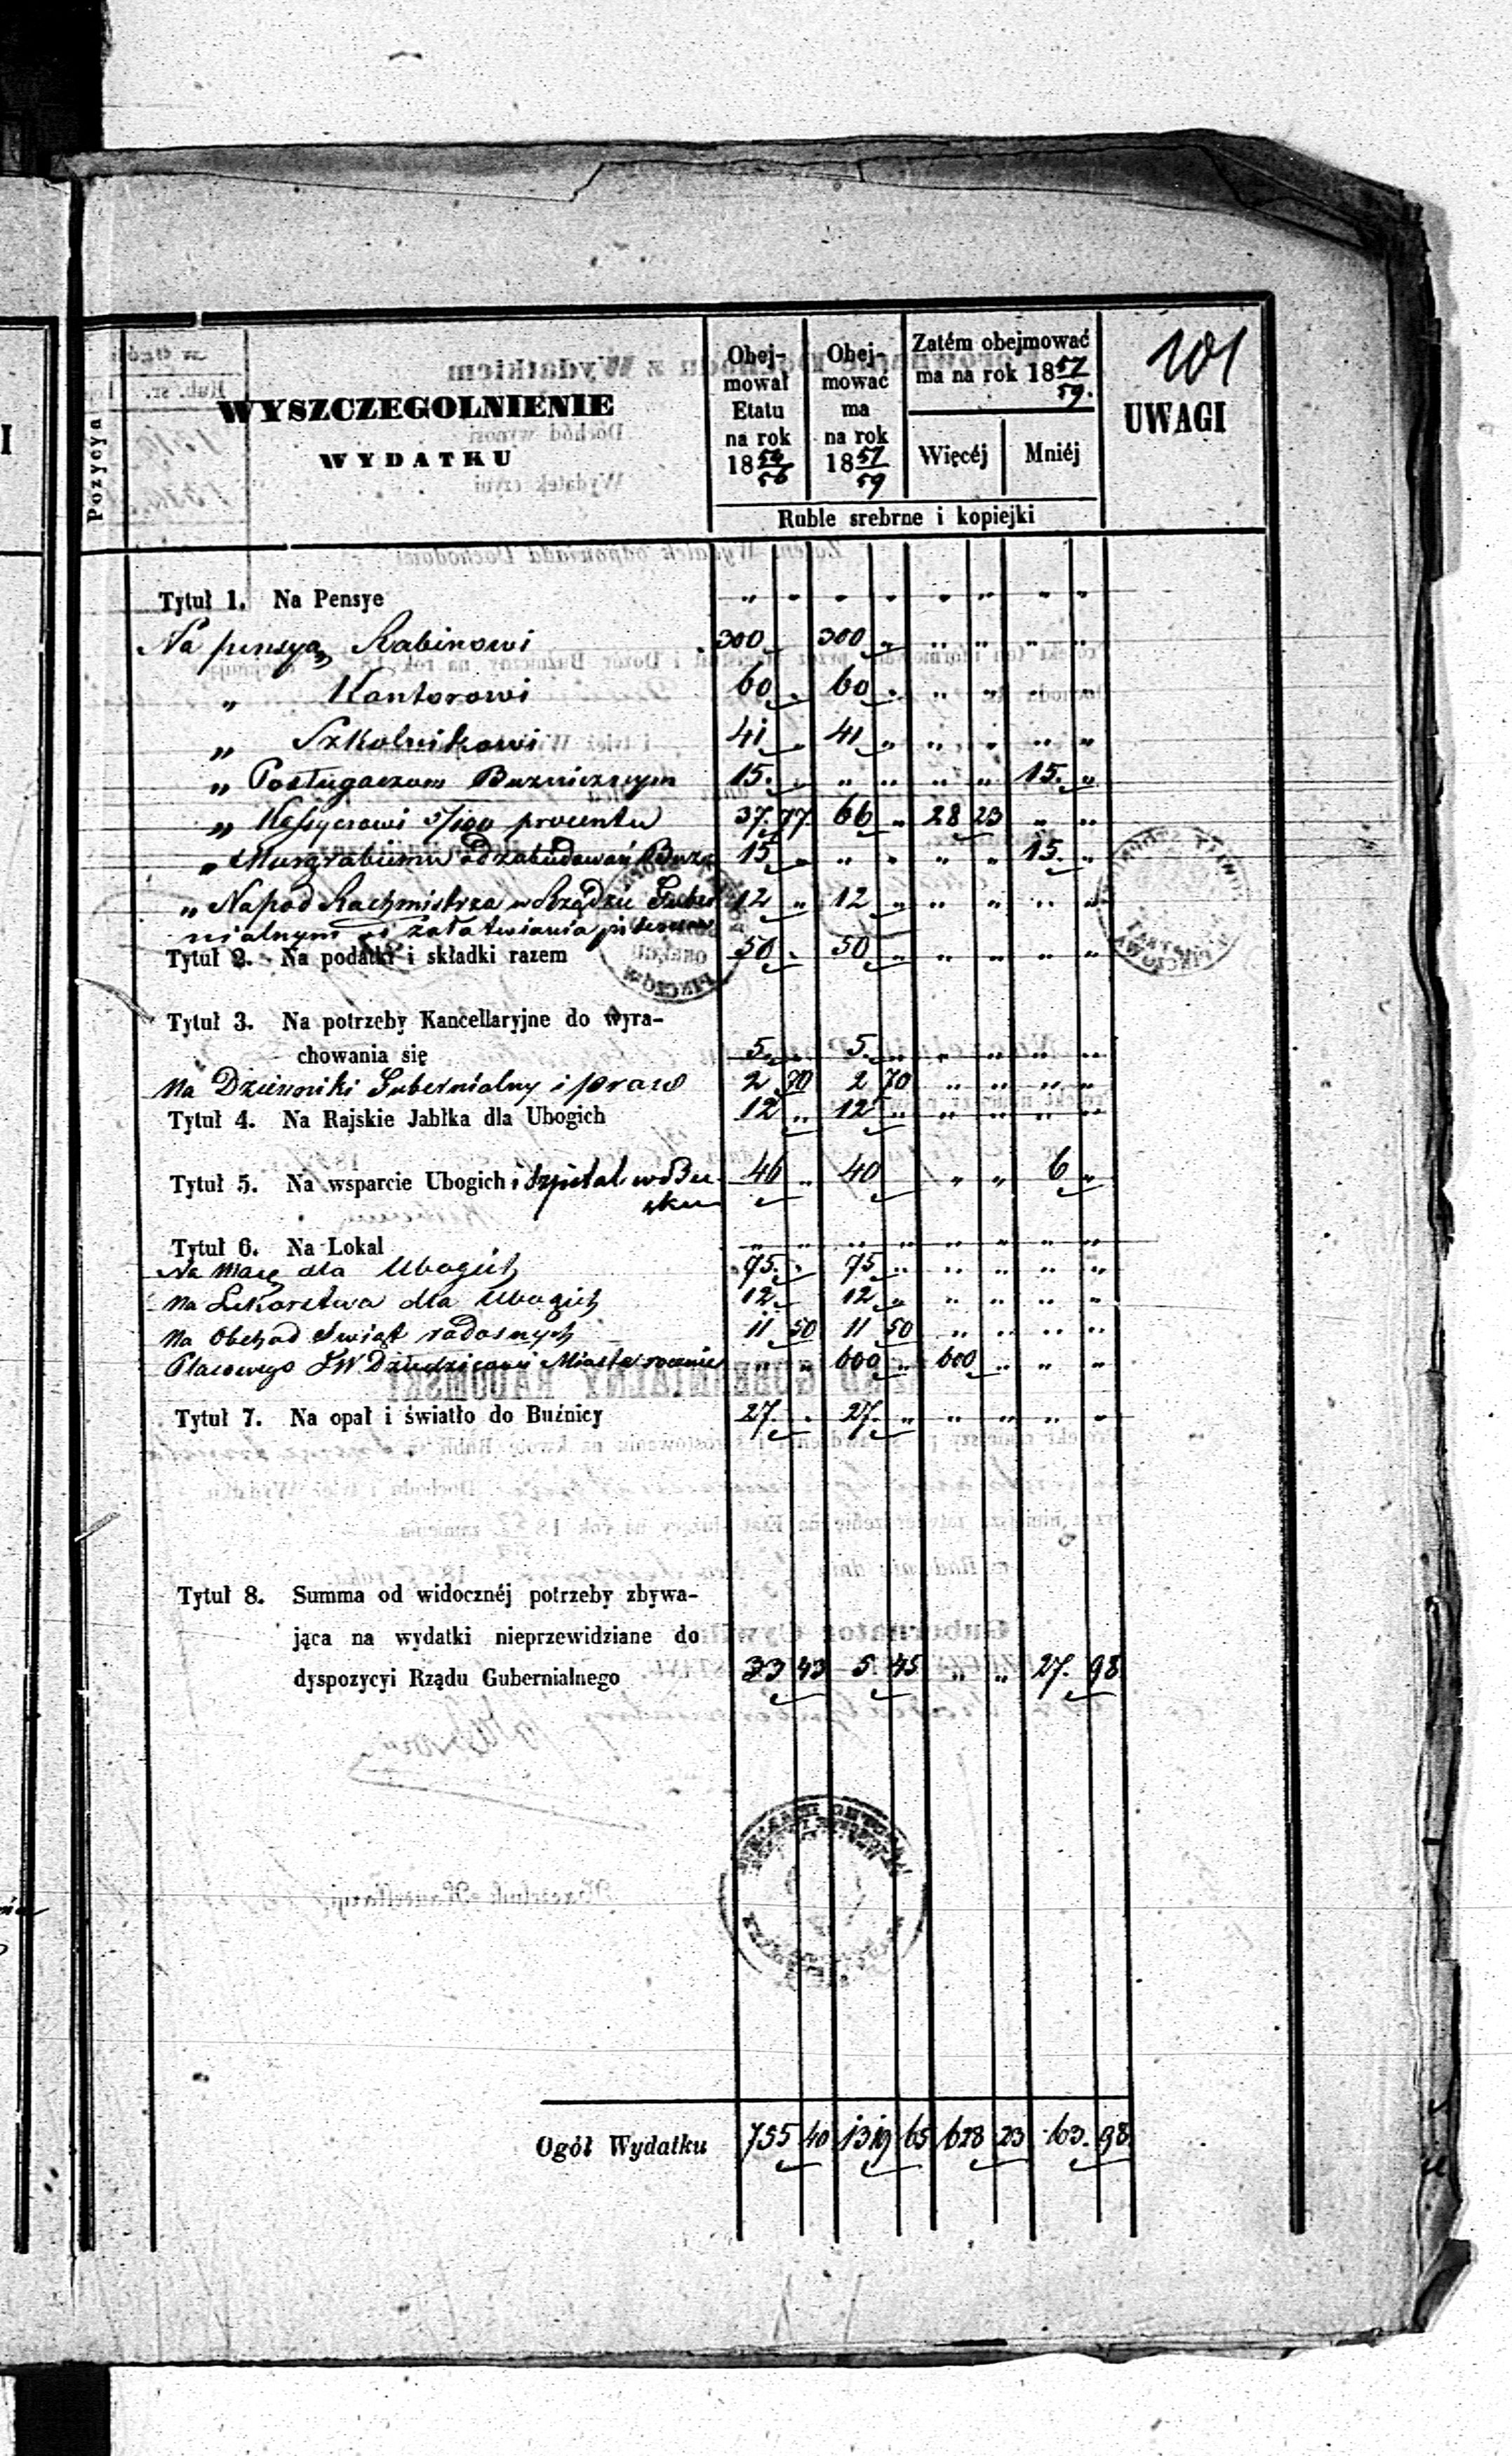 101
Pozycya
WYSZCZEGOLNIENIE
WYDATKU
Obej-
mował
Etatu
na rok
18 54/56
Obej-
mować
ma
na rok
18 57/59
Zatém obejmować
ma na rok 18 57/59.
Więcéj
Mniéj
UWAGI
Ruble srebrne i kopiejki
Tytuł 1. Na Pensye " " " " " " " "
Na pensyą Rabinowi 300 300 " " " " "
" Kantorowi 60 " 60 " " " " "
" Szkolnikowi 41 " 41 " " " " "
" Posługaczom Buznicznym 15. " " " " " 15. "
" Kassyerowi 5/100 procentu 37. 77. 66 " 28 23 " "
" Murgrabiemu od zabudowań Buzn 15 " " " " " 15. "
" Na pod Rachmistrza w Rządzie Guber 12 " 12 " " " " "
nialnym załatwiania
Tytuł 2. Na podatki i składki razem 50 " 50 " " " " "
Tytuł 3. Na potrzeby Kancellaryjne do wyra-
chowania się 5. " 5. " " " " "
Na Dzienniki Gubernialny i praw 2 70 2 70 " " " "
Tytuł 4. Na Rajskie Jabłka dla Ubogich 12 " 12 " " " " "
Tytuł 5. Na wsparcie Ubogich i Szpital w Bu 46 " 40 " " 6 "
sku
Tytuł 6. Na Lokal " " " " " " " "
Na Macę dla Ubogich 75. " 75 " " " " "
Na Lekarstwa dla Ubogich 12 " 12 " " " " "
Na Obchod Świąt radosnych 11 50 11 50 " " " "
Placowego JW. Dziedzicowi Miasta rocznie " " 600 " 600 " " "
Tytuł 7. Na opał i światło do Buźnicy 27. " 27. " " " " "
Tytuł 8. Summa od widocznéj potrzeby zbywa-
jąca na wydatki nieprzewidziane do
dyspozycyi Rządu Gubernialnego 33 43 5. 45 " " 27. 98
Ogół Wydatku 755 40 1319 65 628 23 63. 98